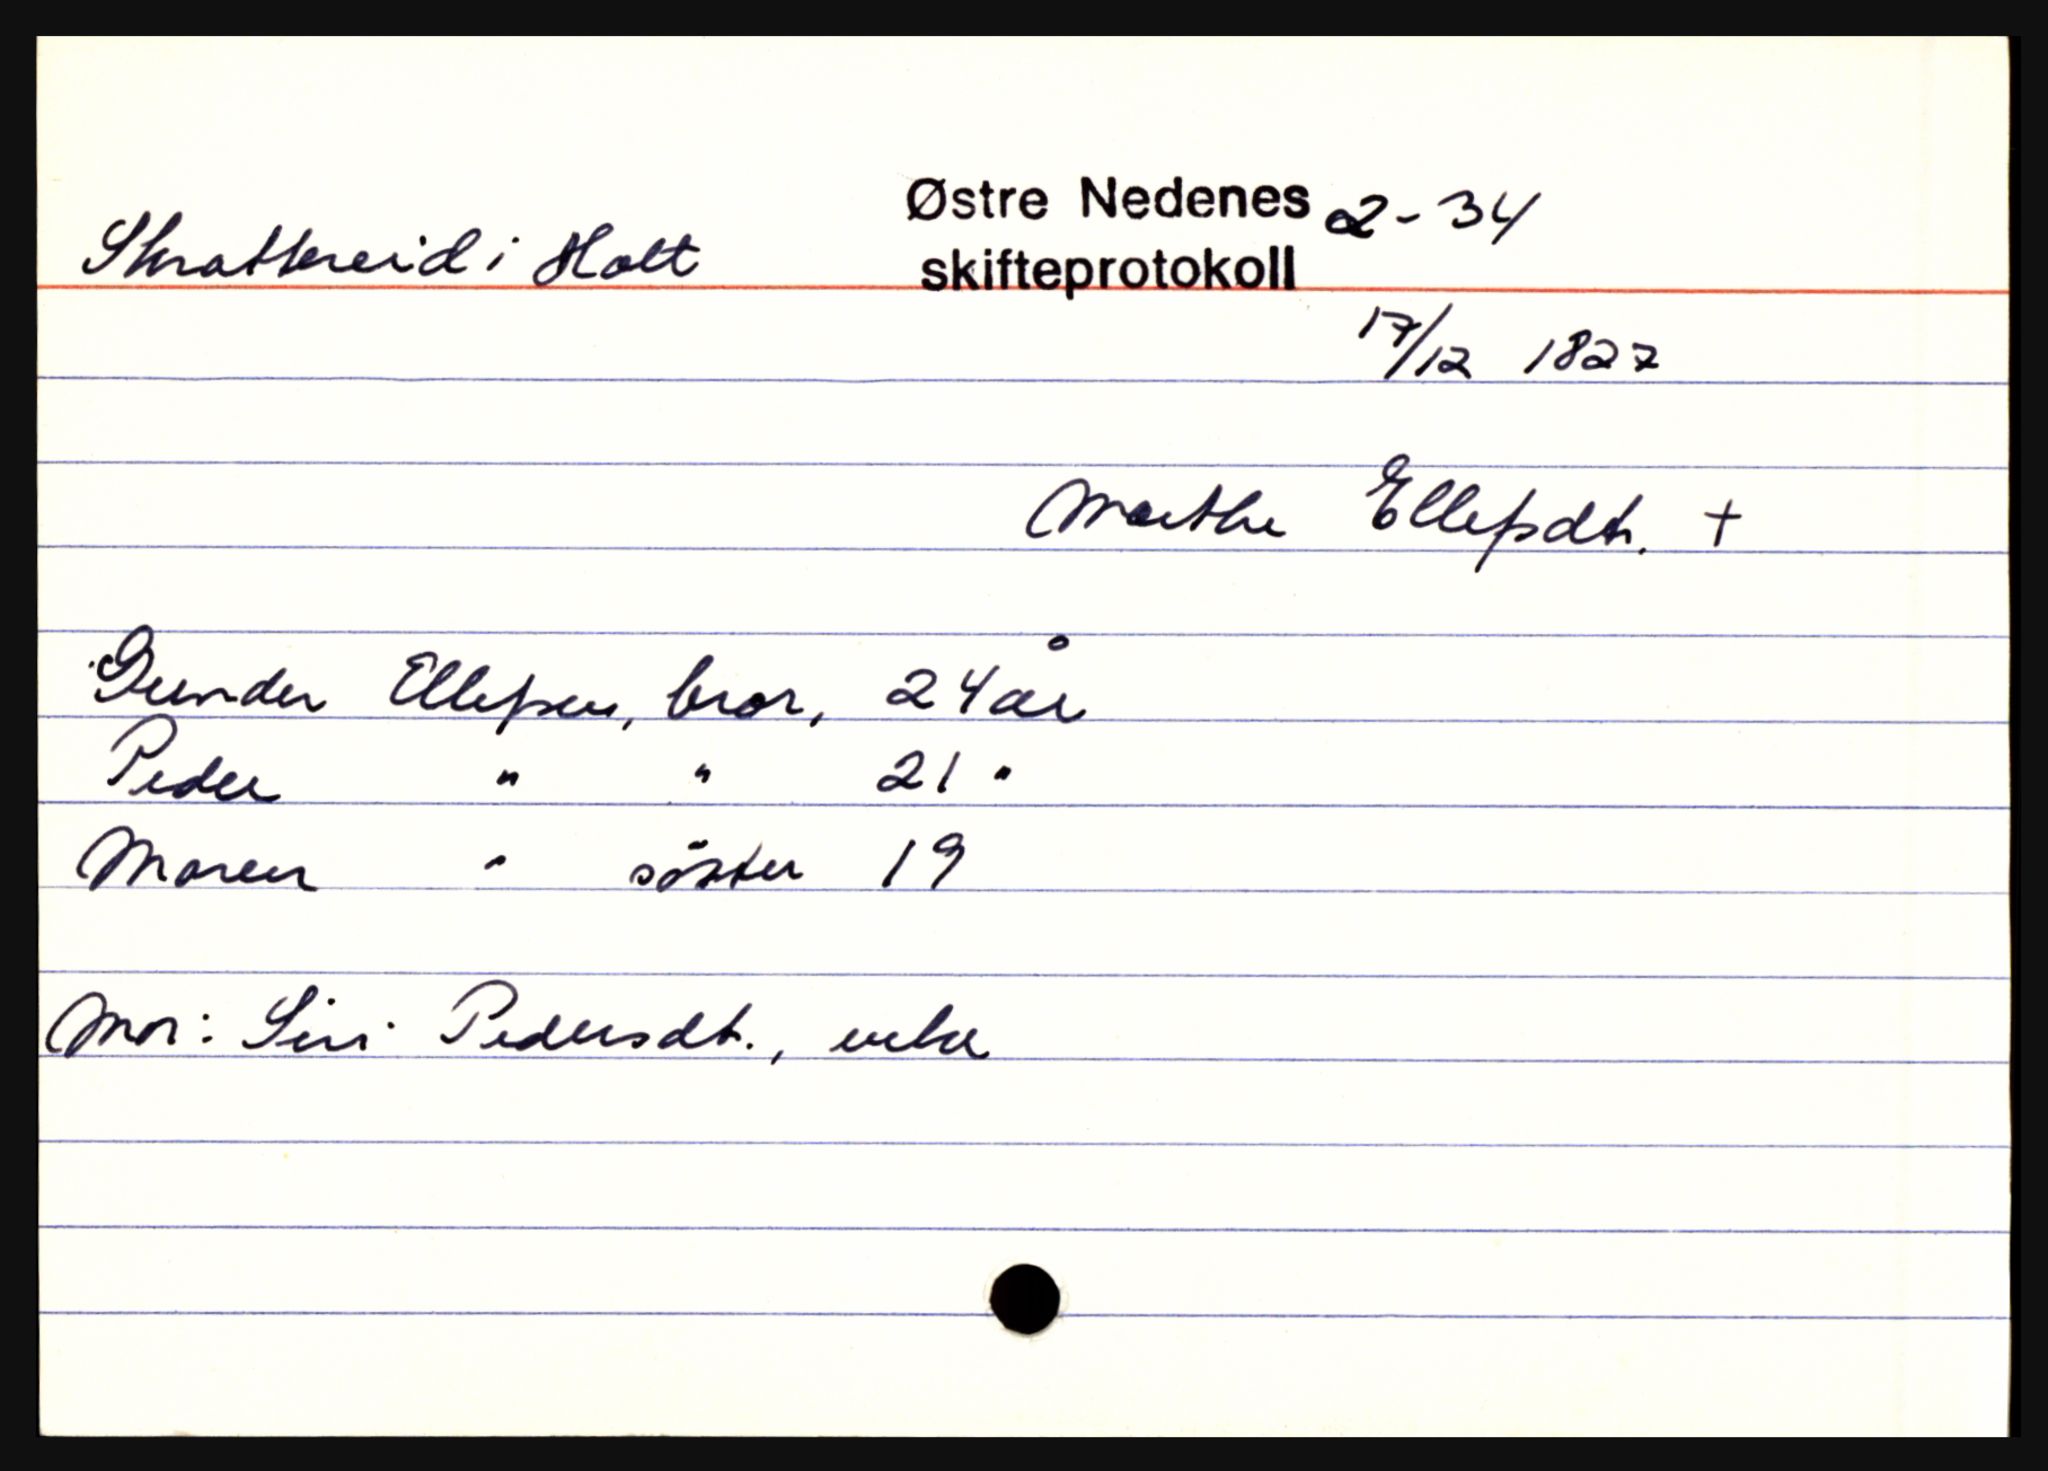 Østre Nedenes 2-34
Skrattereid i Holt skifteprotokoll
17/12 1827
Marthe Ellefsdtr. +
Gunder Ellefsen, bror, 24 år
Peder " " 21 "
Maren " söster 19
Mor: Siri Pedersdt., enke